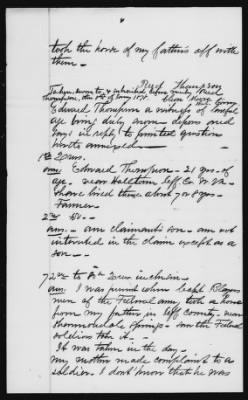 took the horse of my father's off with
them.
Thompson
Taken, sworn to & subscribed before
Thompson, this 8th of 1878.
Edward Thompson a witness of lawful
age being duly sworn deposes and
says in reply to printed question
hereto annexed
1st Ques.
ans Edward Thompson - 21 yrs. of
age. near Halltown Jeff. Co. W. Va.
have lived there about 7 or 8 yrs -
Farmer -
2nd Do. -
Ans. - am claimants son - am not
interested in the claim except as a
son -
72nd to Ques inclusive -
Ans I was present when Capt
men of the Federal army, took a horse
from my father in Jeff County - near
Springs - saw the Federal
soldiers take it -
It was taken in the day -
my mother made complaint to a
soldier. I don't know that he was